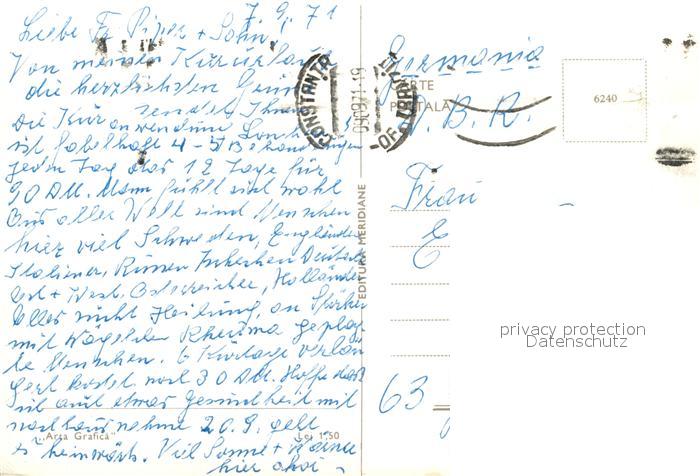 7.9.71
Liebe Fr. Piper + Sohn,
Von meinem Kururlaub
die herzlichsten Grüße
sendet Ihnen
Die Kur
ist fabelhaft 4-5 Behandlungen
jeden Tag das 12 Tage für
90 DM. Man fühlt sich wohl
Aus aller Welt sind Menschen
hier viel Schweden, Engländer
Italiener, Tschechen Deutsche
Ost + West. Österreicher, Holländer
Alles sucht Heilung, an
mit Rheuma geplag-
te Menschen. 6 Kurtage verlän-
gert kostet noch 30 DM. Hoffe das
ich auch etwas Gesundheit mit
nach Haus nehme 20.9. geht
es heimwärts. Viel Sonne + Wärme
hier
"Arta Grafică"
Lei 1,50
EDITURA MERIDIANE
CONSTANTA
09.09.71-19
Germania
CARTE POSTALĂ
B. R.
6240
Frau
E
63
privacy protection
Datenschutz